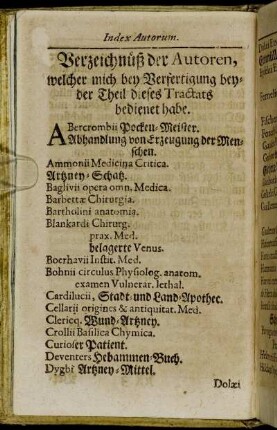 Index Autorum.
Verzeichnüß der Autoren,
welcher mich bey Verfertigung bey-
der Theil dieses Tractats
bedienet habe.
ABercrombii Pocken-Meister.
Abhandlung von Erzeugung der Men-
schen.
Ammonii Medicina Critica.
Artzney-Schatz.
Baglivii opera omn. Medica.
Barbettæ Chirurgia.
Bartholini anatomia.
Blankardi Chirurg.
prax. Med.
belagerte Venus.
Boerhavii Instit. Med.
Bohnii circulus Physiolog. anatom.
examen Vulnerar. lethal.
Cardilucii, Stadt-und Land-Apothec.
Cellarii origines & antiquitat. Med.
Clericq. Wund-Artzney.
Crollii Basilica Chymica.
Curioser Patient.
Deventers Hebammen-Buch.
Dygbi Artzney-Mittel.
Dolæi